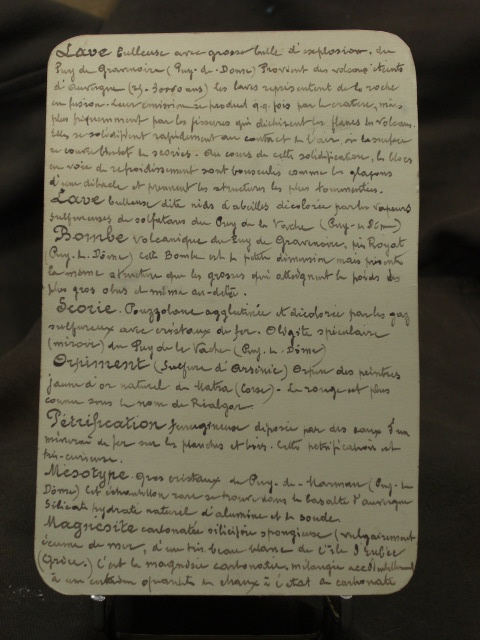 Lave bulleuse avec grosse bulle d'explosion, du
Puy de Gravenoire (Puy-de-Dome) Provient des volcans éteints
d'Auvergne (25-30000 ans) les laves représentent de la roche
en fusion. Leur émission se produit q.q. fois par le cratère, mais
plus fréquemment par les fissures qui déchirent les flancs du volcan.
Elles se solidifient rapidement au contact de l'air, où la surface
se couvre bientot de scories. Au cours de cette solidification, les blocs
en voie de refroidissement sont bousculés comme les glaçons
d'une débacle et prennent les structures les plus tourmentées.
Lave bulleuse dite nids d'abeilles décolorée par les vapeurs
sulfureuses de solfatares du Puy de la Vache (Puy-de-Dôme)
Bombe volcanique du Puy de Gravenoire, près Royat
(Puy-de-Dôme) Cette Bombe est de petite dimension mais présente
la même structure que les grosses qui atteignent le poids des
plus gros obus et même au-delà.
Scorie. Pouzzolane agglutinée et décolorée par les gaz
sulfureux avec cristaux de fer. Oligite spéculaire
(miroir) du Puy de la Vache (Puy-de-Dôme)
Orpiment (Sulfure d'Arsenic) Orpin des peintres
jaune d'or naturel de Matra (Corse) - Le rouge est plus
connu sous le nom de Rialgar.
Pétrification ferrugineuse déposée par des eaux d'un
minerai de fer sur les planches et bois. Cette pétrification est
très-curieuse.
Mesotype gros cristaux du Puy-de-Marman (Puy-de
Dôme) Cet échantillon rare se trouve dans le basalte d'Auvergne
Silicate hydraté naturel d'alumine et de soude.
Magnesite carbonatée silicifère spongieuse (vulgairement
écume de mer, d'un très beau blanc de l'île d'Eubée
(Grèce). C'est la magnésie carbonatée, mélangée accidentellement
à une certaine quantité de chaux à l'état de carbonate